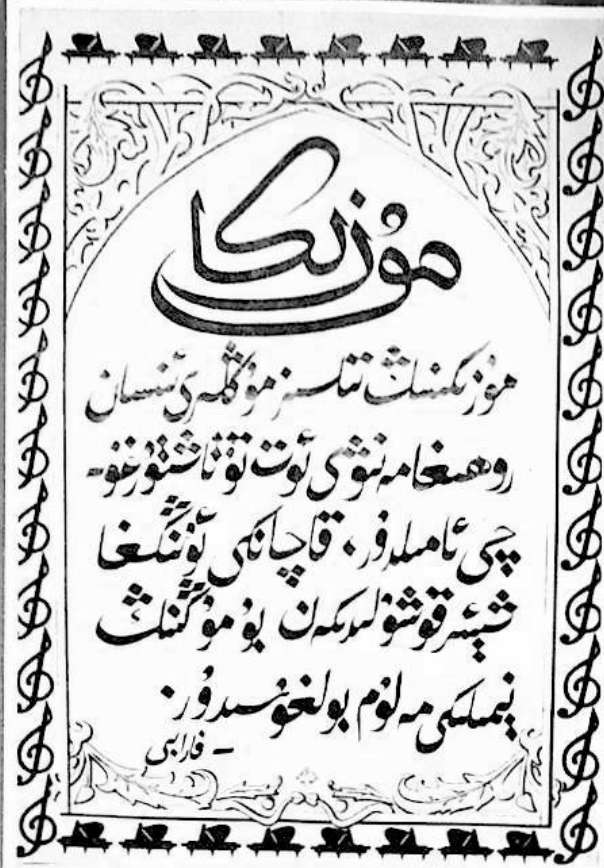 مۇزىكا
مۇزىكىنىڭ تىلسىز مۇڭلىرى ئىنسان
روھىغا مەنىۋى ئوت تۇتاشتۇرغۇ-
چى ئامىلدۇر. قاچانكى ئۇنىڭغا
شېئىر قوشۇلىدىكەن بۇ مۇڭنىڭ
نېمىلىكى مەلۇم بولغۇسىدۇر.
- فارابى